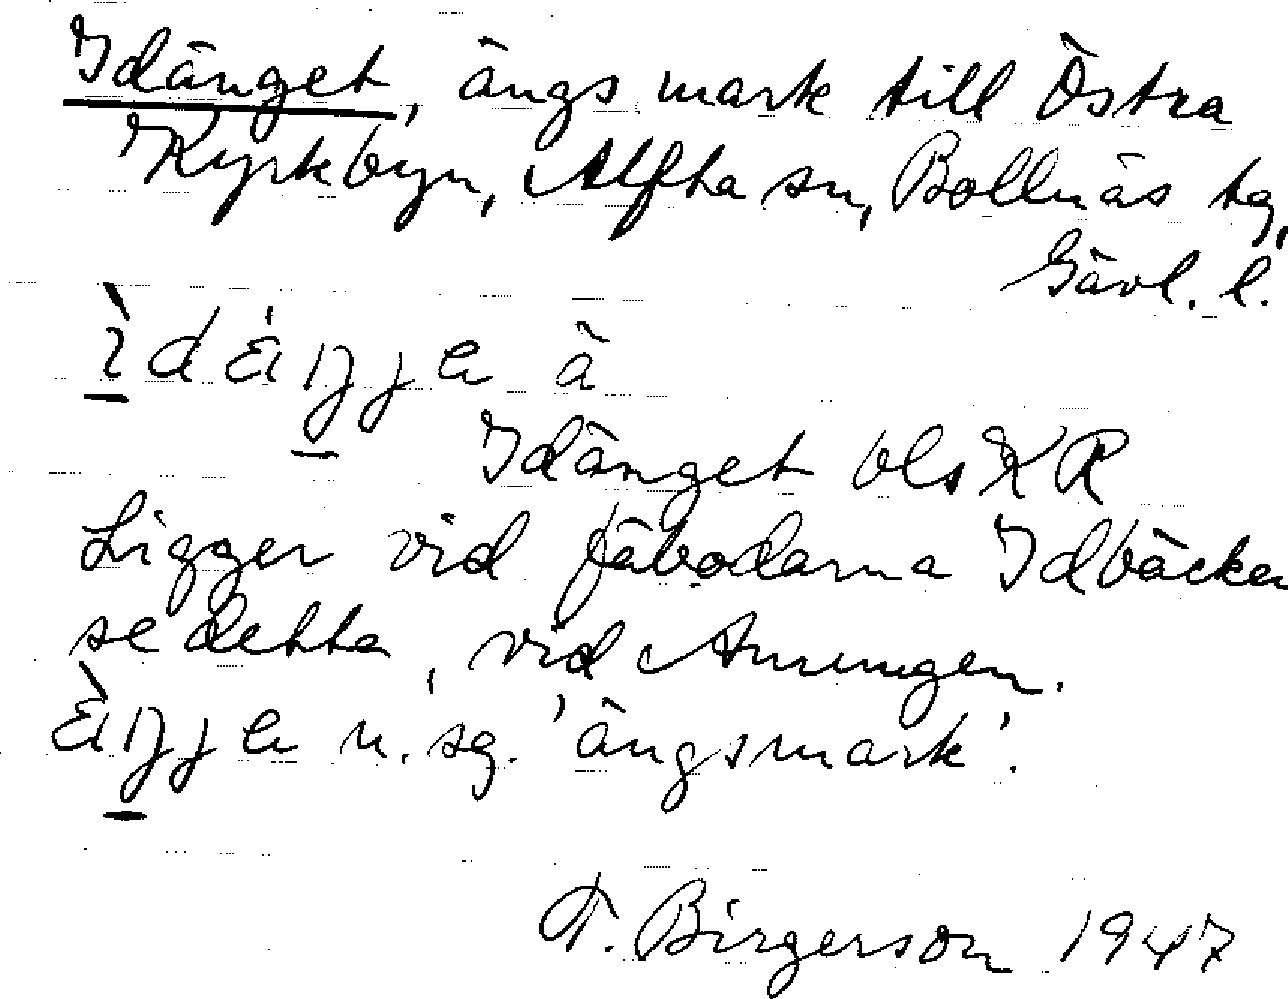 Idänget, ängsmark till Östra
Kyrkbyn, Alfta sn, Bollnäs tg,
Gävl. l.
ìdáŋje ä
Idänget bls KR
Ligger vid fäbodarna Idbäcken
se detta, vid Amungen.
àŋje n. sg. 'ängsmark'.
F. Birgerson 1947